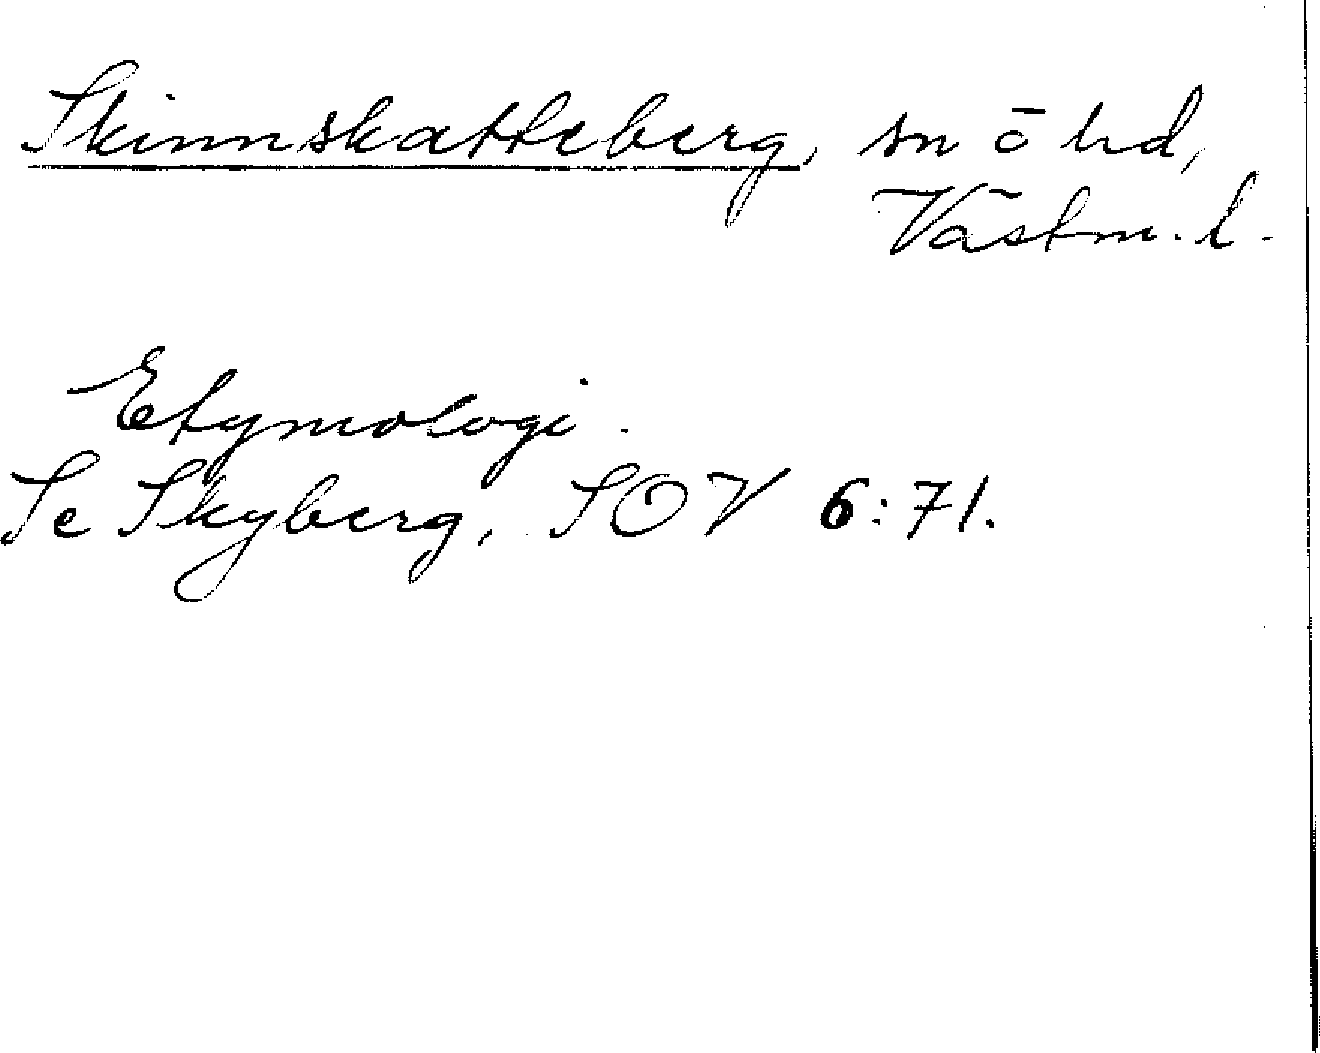 Skinnskatteberg, sn ō hd,
Västm. l.
Etymologi.
Se Skyberg, SOV 6:71.